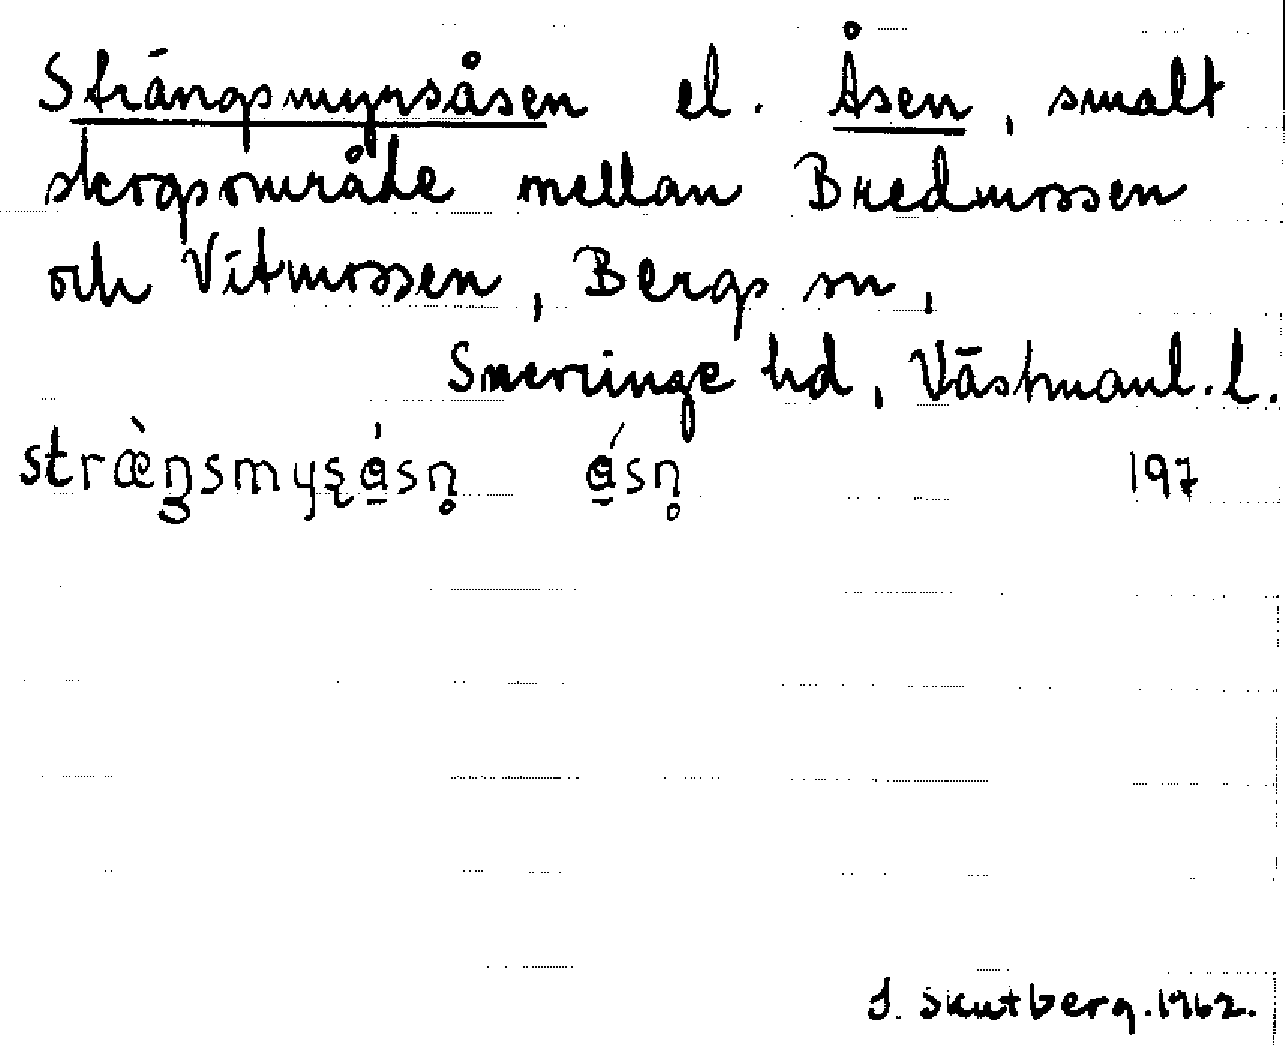 Strängsmyrsåsen el. Åsen, smalt
skogsområde mellan Bredmossen
och Vitmossen, Bergs sn,
Snevringe hd, Västmanl. l.
197
J. Skutberg. 1962.